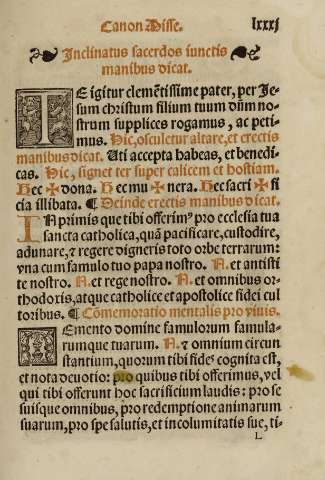 Canon Misse. lxxxj
Inclinatus sacerdos iunctis
manibus dicat.
TE igitur clemẽtissime pater, per Je-
sum christum filium tuum dñm no-
strum supplices rogamus, ac peti-
mus. Hic, osculetur altare, et erectis
manibus dicat. Uti accepta habeas, et benedi-
cas. Hic, signet ter super calicem et hostiam.
Hec ✠ dona. Hec mu ✠ nera. Hec sacri ✠ fi
cia illibata. ¶ Deinde erectis manibus dicat.
IN primis que tibi offerimꝰ pro ecclesia tua
sancta catholica, quã pacificare, custodire,
adunare, ⁊ regere digneris toto orbe terrarum:
vna cum famulo tuo papa nostro. N. et antisti
te nostro. N. et rege nostro. N. et omnibus or-
thodoxis, atque catholice et apostolice fidei cul
toribus. ¶ Cõmemoratio mentalis pro viuis.
MEmento domine famulorum famula-
rumque tuarum. N. ⁊ omnium circun
stantium, quorum tibi fides cognita est,
et nota deuotio: pro quibus tibi offerimus, vel
qui tibi offerunt hoc sacrificium laudis: pro se
suisque omnibus, pro redemptione animarum
suarum, pro spe salutis, et incolumitatis sue, ti-
L